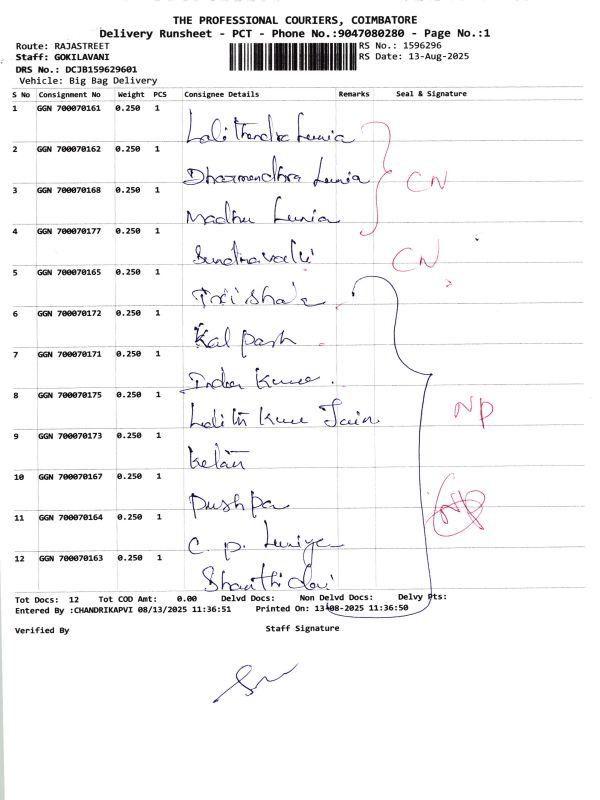 THE PROFESSIONAL COURIERS, COIMBATORE
Delivery Runsheet - PCT - Phone No.:9047080280 - Page No.:1
Route: RAJASTREET RS No.: 1596296
Staff: GOKILAVANI RS Date: 13-Aug-2025
DRS No.: DCJB159629601
Vehicle: Big Bag Delivery
S No Consignment No Weight PCS Consignee Details Remarks Seal & Signature
1 GGN 700070161 0.250 1
Lalithendra Lunia
2 GGN 700070162 0.250 1
Dharmendhra Lunia CN
3 GGN 700070168 0.250 1
Madhu Lunia
4 GGN 700070177 0.250 1
CN
5 GGN 700070165 0.250 1
6 GGN 700070172 0.250 1
Kalpash
7 GGN 700070171 0.250 1
8 GGN 700070175 0.250 1
Lalith Jain NP
9 GGN 700070173 0.250 1
10 GGN 700070167 0.250 1
Pushpa NP
11 GGN 700070164 0.250 1
C. P. Luniya
12 GGN 700070163 0.250 1
Tot Docs: 12 Tot COD Amt: 0.00 Delvd Docs: Non Delvd Docs: Delvy Pts:
Entered By :CHANDRIKAPVI 08/13/2025 11:36:51 Printed On: 13-08-2025 11:36:50
Verified By Staff Signature